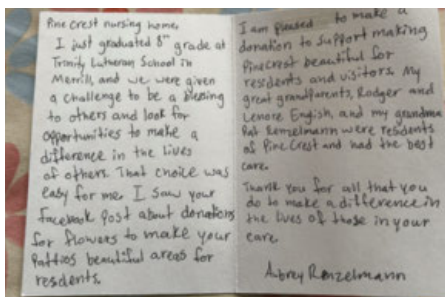 Pine Crest nursing home,
I just graduated 8th grade at
Trinity Lutheran School in
Merrill, and we were given
a challenge to be a blessing
to others and look for
opportunities to make a
difference in the lives
of others. That choice was
easy for me. I saw your
Facebook Post about donations
for flowers to make your
Pattios beautiful areas for
residents.
I am pleased to make a
donation to support making
Pinecrest beautiful for
residents and visitors. My
great grandparents, Rodger and
Lenore Engish, and my grandma
Pat Renzelmann were residents
of Pine Crest and had the best
care.
Thank you for all that you
do to make a difference in
the lives of those in your
care.
Aubrey Renzelmann